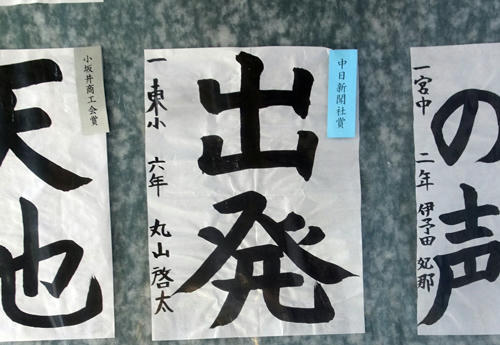 の声
一宮中 二年 伊予田 妃那
中日新聞社賞
出発
一東小 六年 丸山啓太
小坂井商工会賞
天也